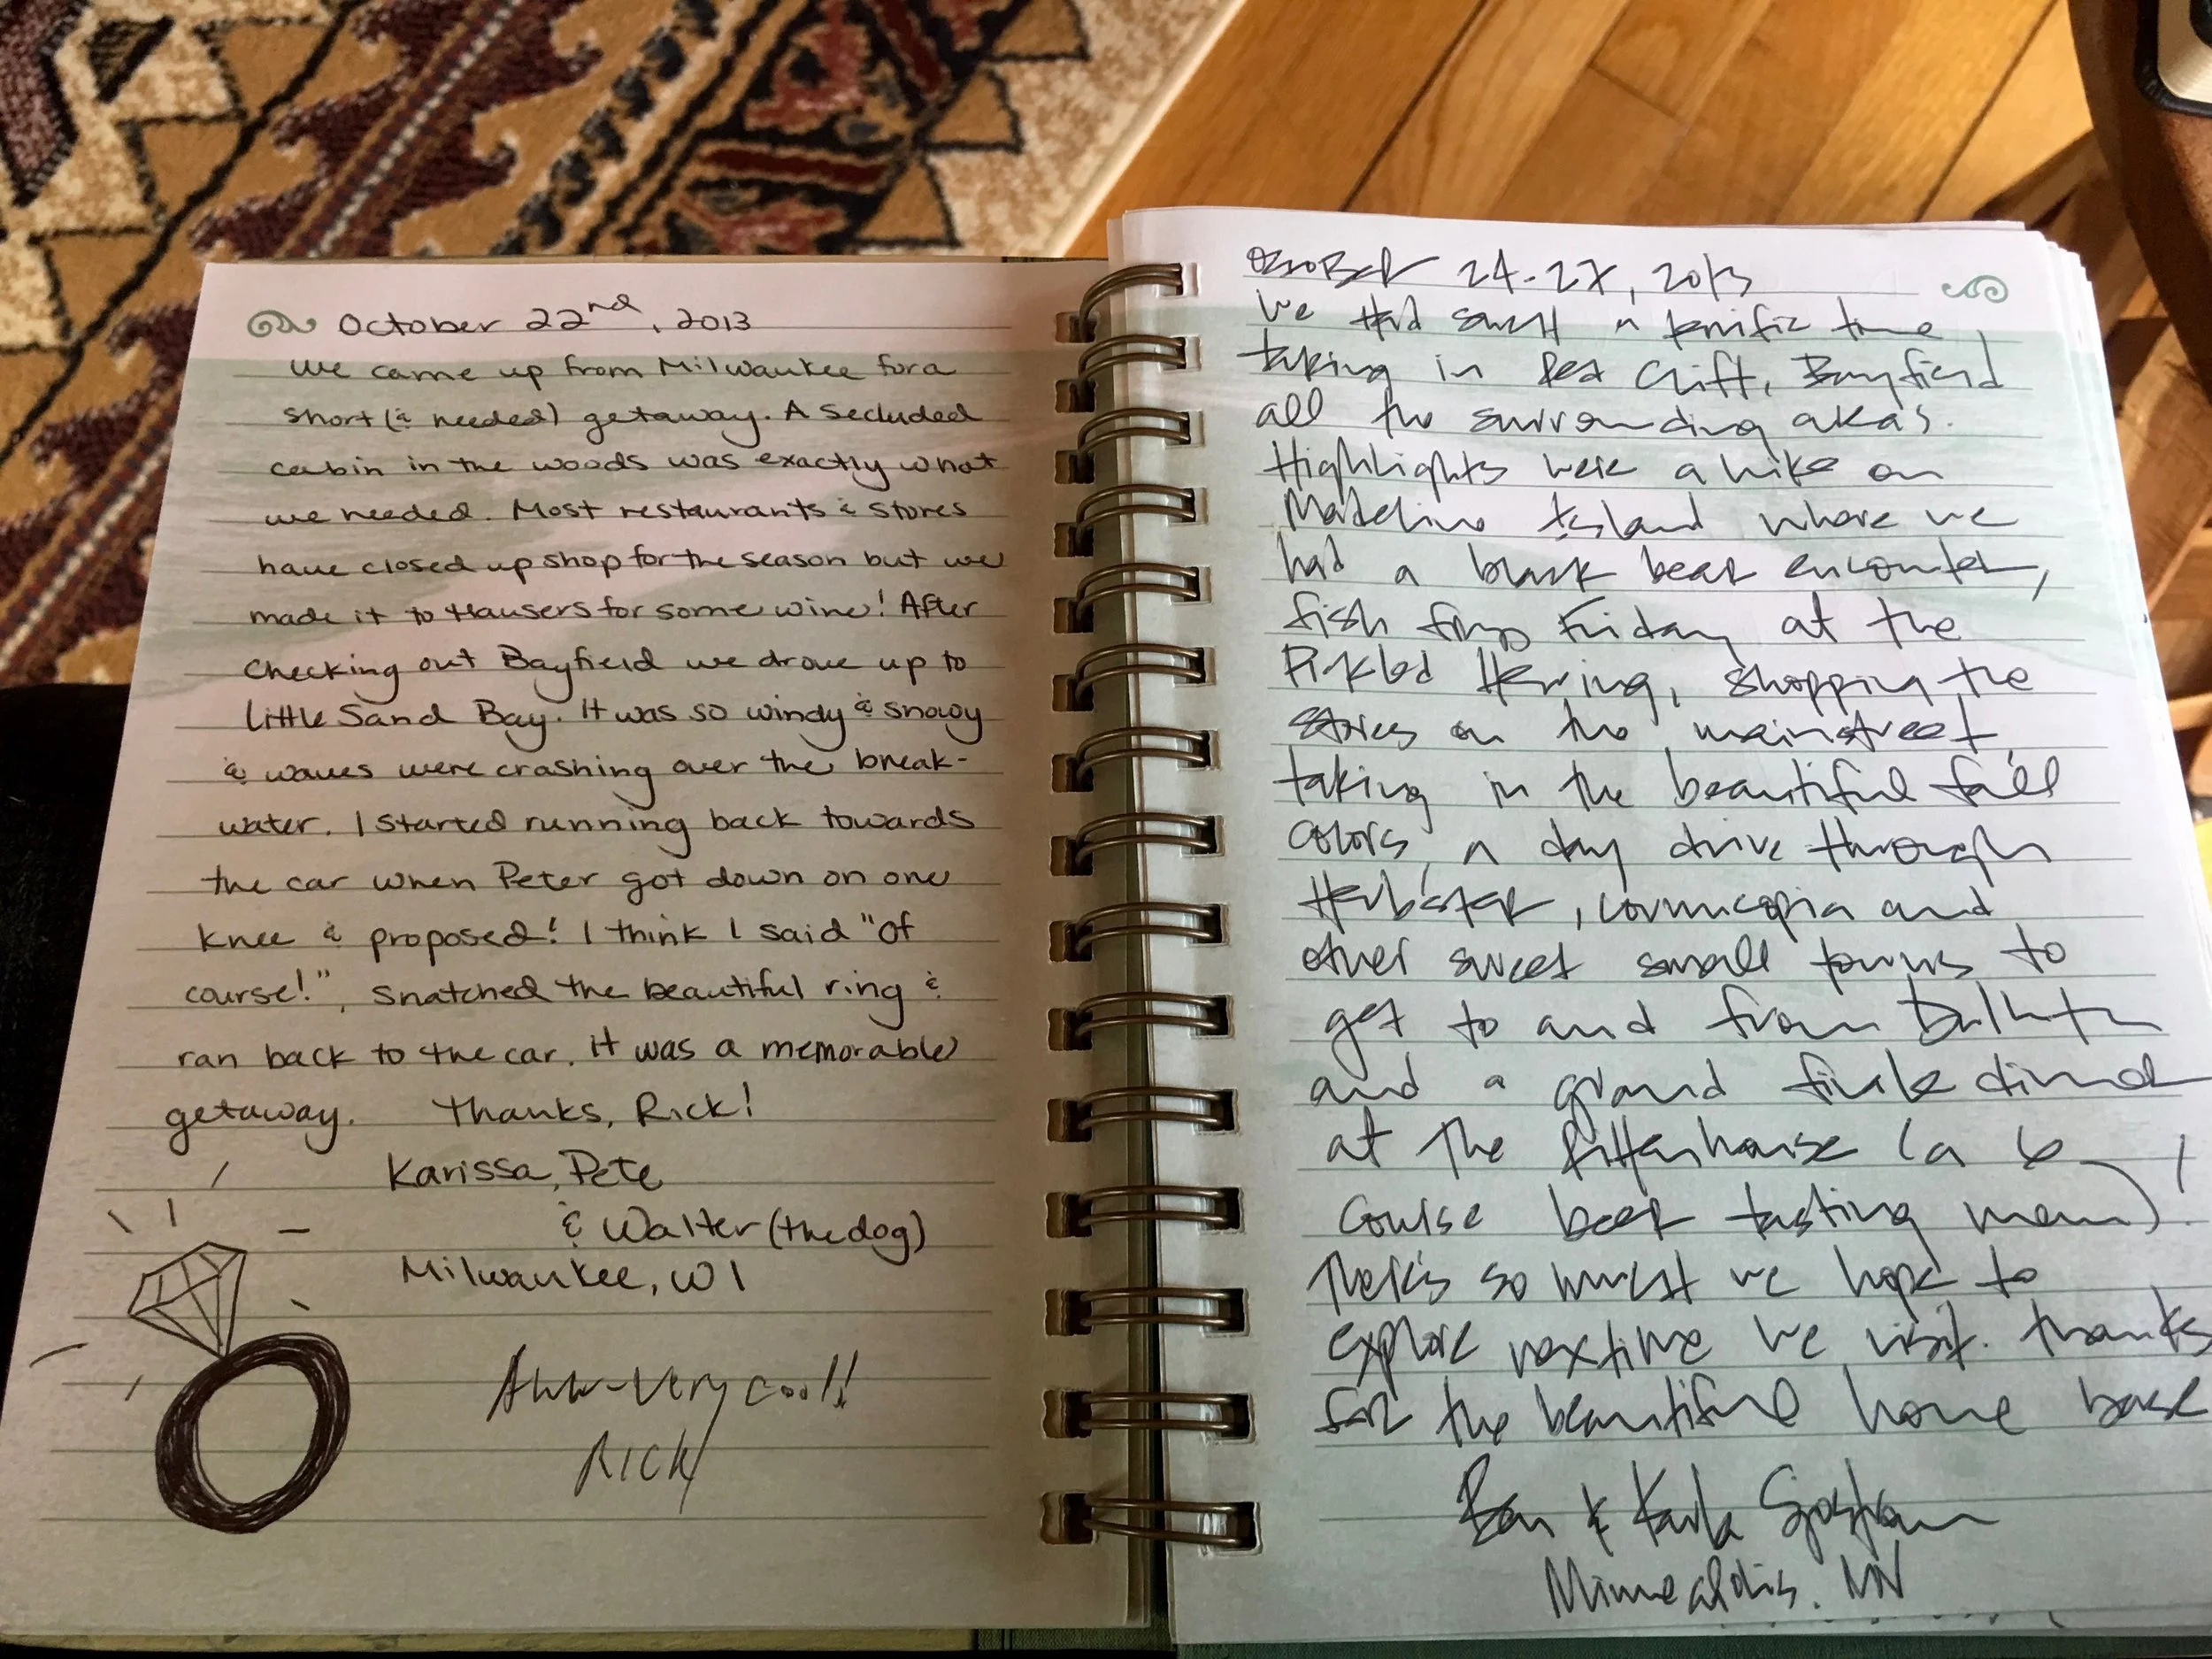 October 22nd, 2013
We came up from Milwaukee for a
short (& needed) getaway. A secluded
cabin in the woods was exactly what
we needed. Most restaurants & stores
have closed up shop for the season but we
made it to Hausers for some wine! After
checking out Bayfield we drove up to
Little Sand Bay. It was so windy & snowy
& waves were crashing over the break-
water. I started running back towards
the car when Peter got down on one
knee & proposed! I think I said "Of
course!", snatched the beautiful ring &
ran back to the car. It was a memorable
getaway. Thanks, Rick!
Karissa, Pete
& Walter (the dog)
Milwaukee, WI
Aww-very cool!
RICK
OCTOBER 24-27, 2013
We Had such a terrific time
taking in Red Cliff, Bayfield
all the surrounding area's.
Highlights were a hike on
Madeline Island where we
had a black bear encounter,
fish frys Friday at the
Pickled Herring, shopping the
stores on the mainstreet,
taking in the beautiful fall
colors, a day drive through
Herbster, Cornucopia and
other sweet small towns to
get to and from Duluth
and a grand finale dinner
at the Rittenhouse (a 6
course beer tasting menu)!
There's so much we hope to
explore next time we visit. Thanks
for the beautiful home base
Ben & Karla
Minneapolis, MN